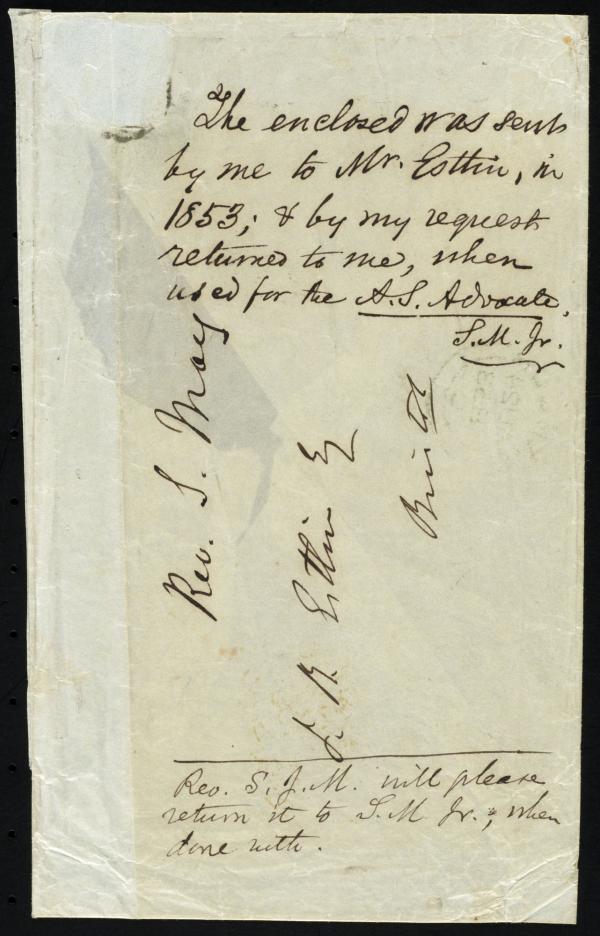 The enclosed was sent
by me to Mr. Estlin, in
1853; & by my request
returned to me, when
used for the A.S. Advocate.
S.M. Jr.
Rev. S. May
J. B. Estlin Esq
Bristol
Rev. S. J. M. will please
return it to S.M. Jr., when
done with.